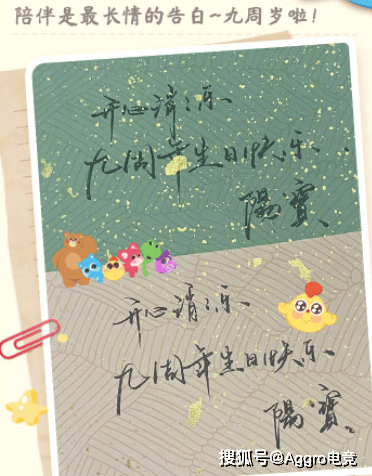 陪伴是最长情的告白~九周岁啦!
开心消消乐、
九周年生日快乐、
陽寶、
开心消消乐、
九周年生日快乐
陽寶、
搜狐号@Aggro电竞